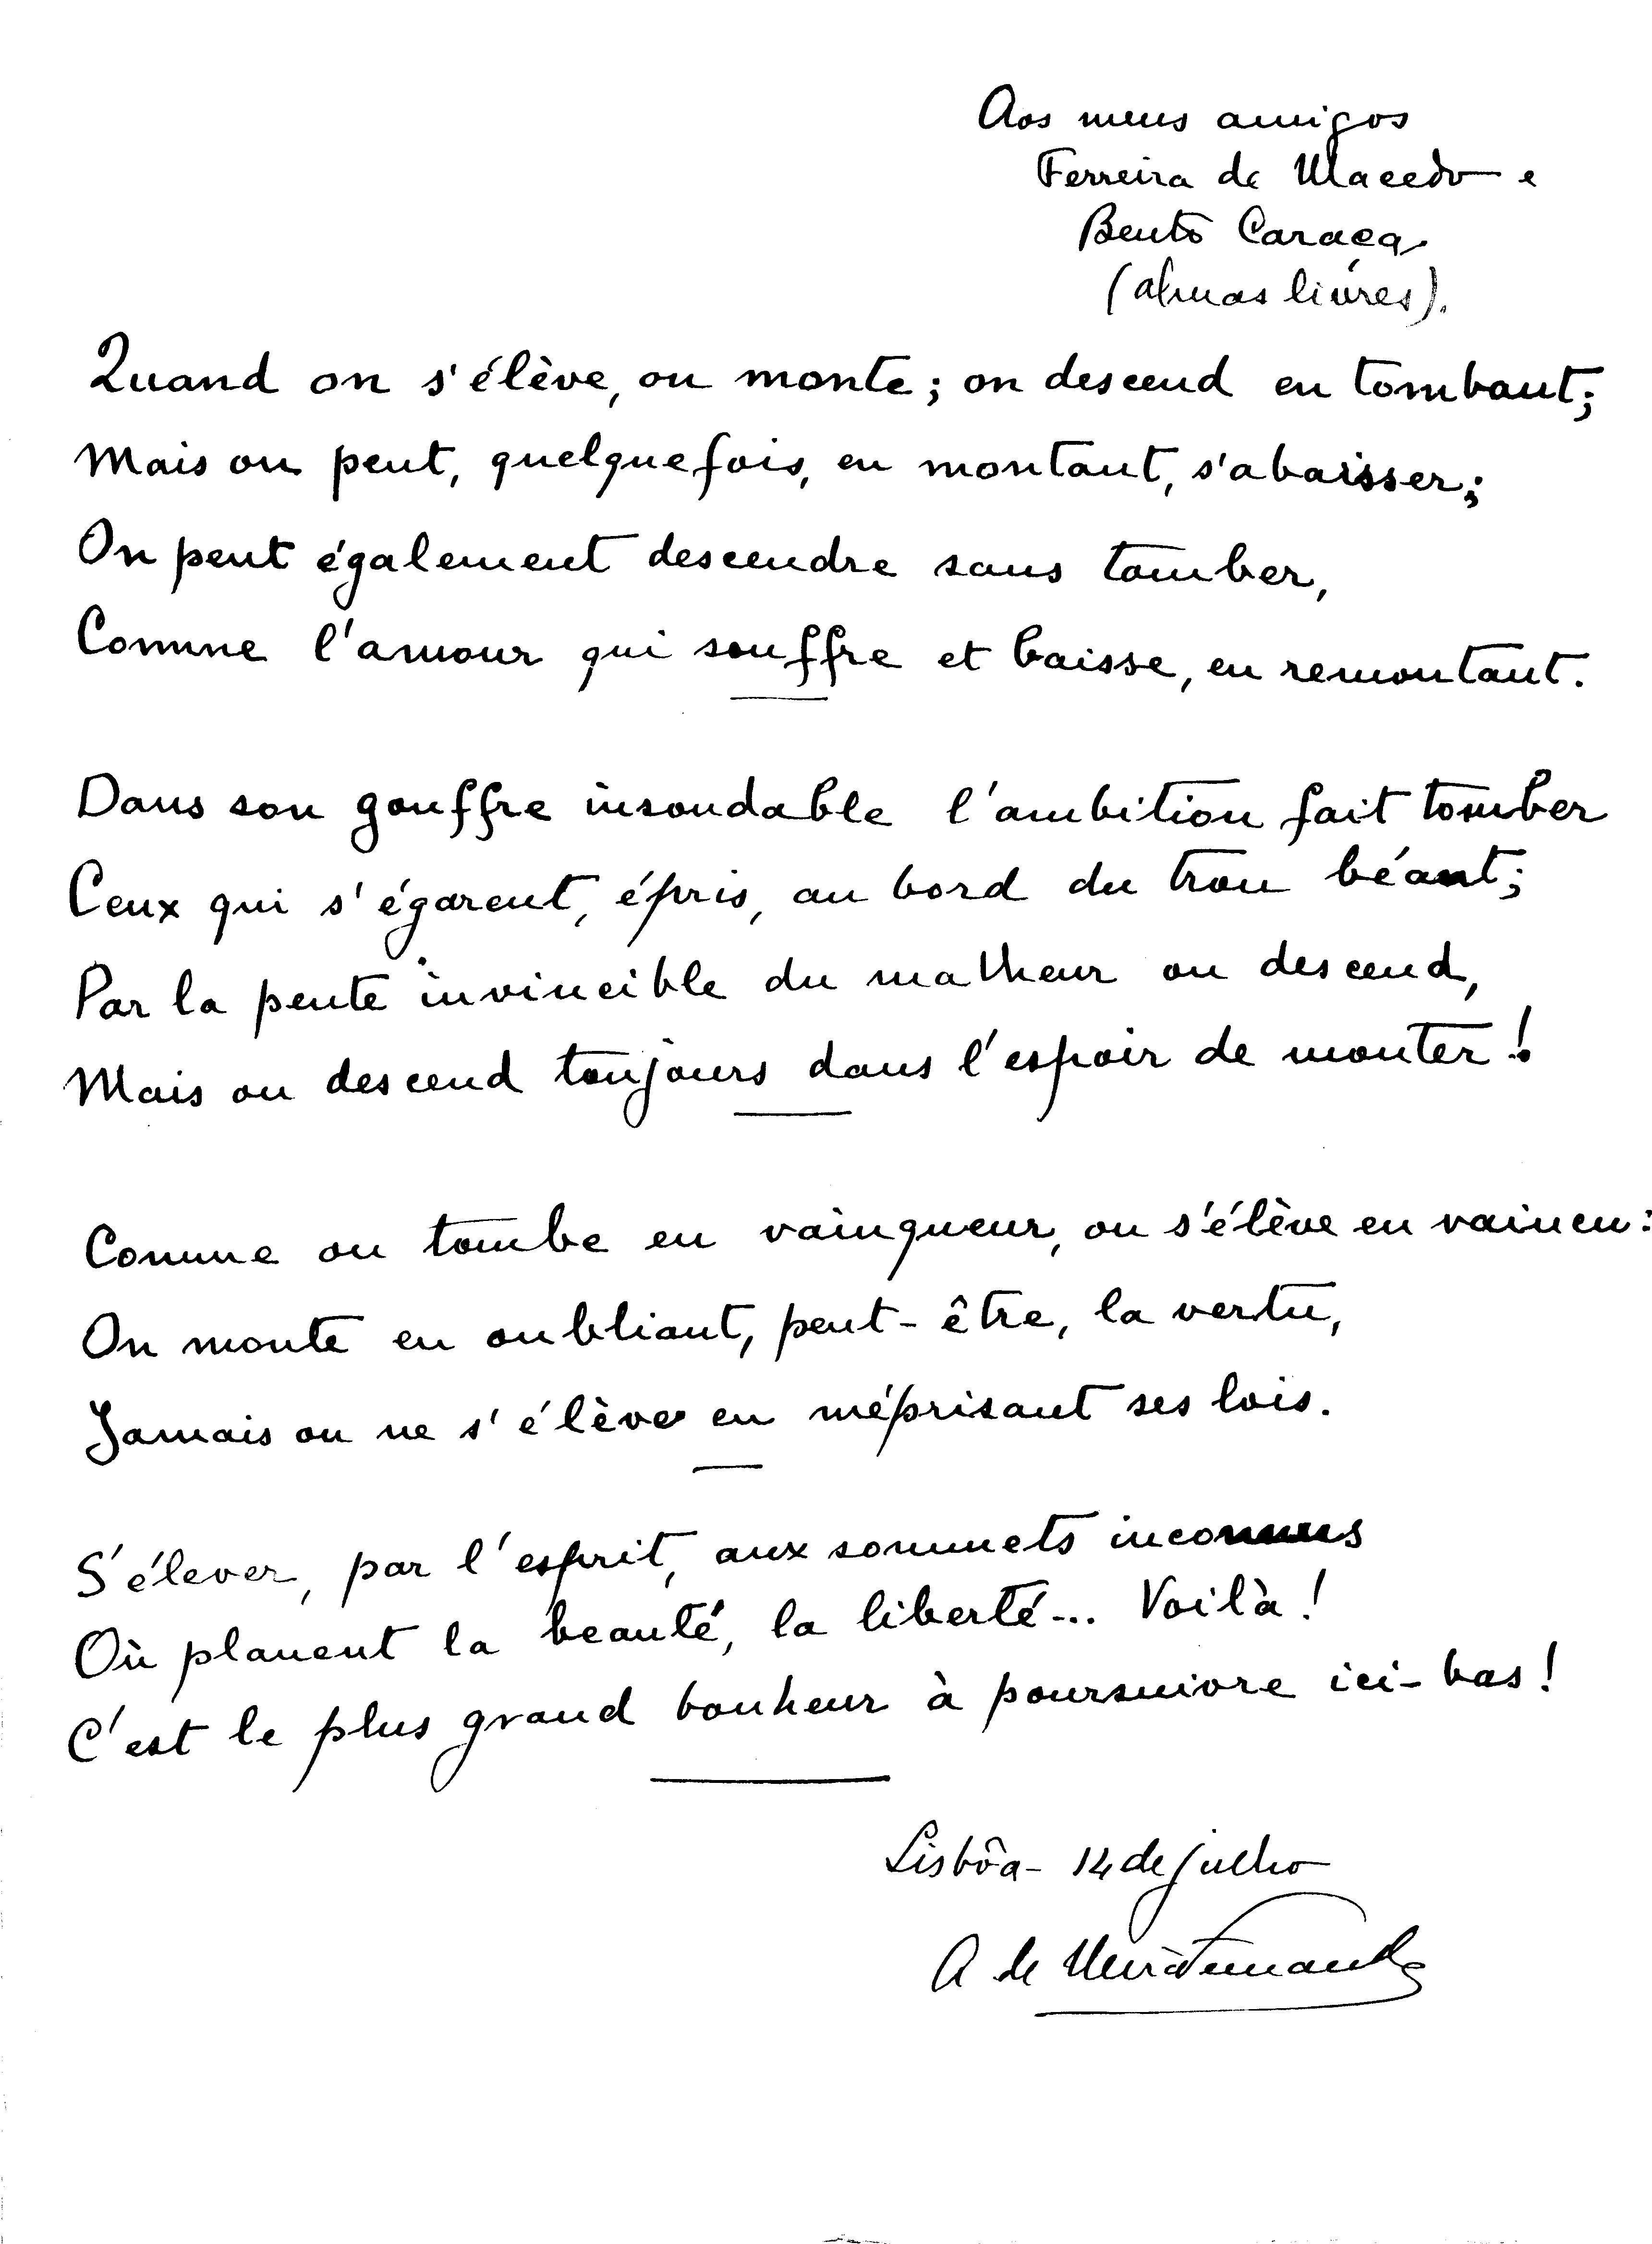 Aos meus amigos
Ferreira de Macedo e
Bento Caraça,
(almas livres).
Quand on s'élève, on monte; on descend en tombant;
Mais on peut, quelquefois, en montant, s'abaisser;
On peut également descendre sans tomber,
Comme l'amour qui souffre et baisse, en remontant.
Dans son gouffre insondable l'ambition fait tomber
Ceux qui s'égarent, épris, au bord du trou béant;
Par la pente invincible du malheur on descend,
Mais on descend toujours dans l'espoir de monter!
Comme on tombe en vainqueur, on s'élève en vaincu:
On monte en oubliant, peut-être, la vertu,
Jamais on ne s'élève en méprisant ses lois.
S'élever, par l'esprit, aux sommets inconnus
Où planent la beauté, la liberté... Voilà!
C'est le plus grand bonheur à poursuivre ici-bas!
Lisbôa - 14 de julho
A de